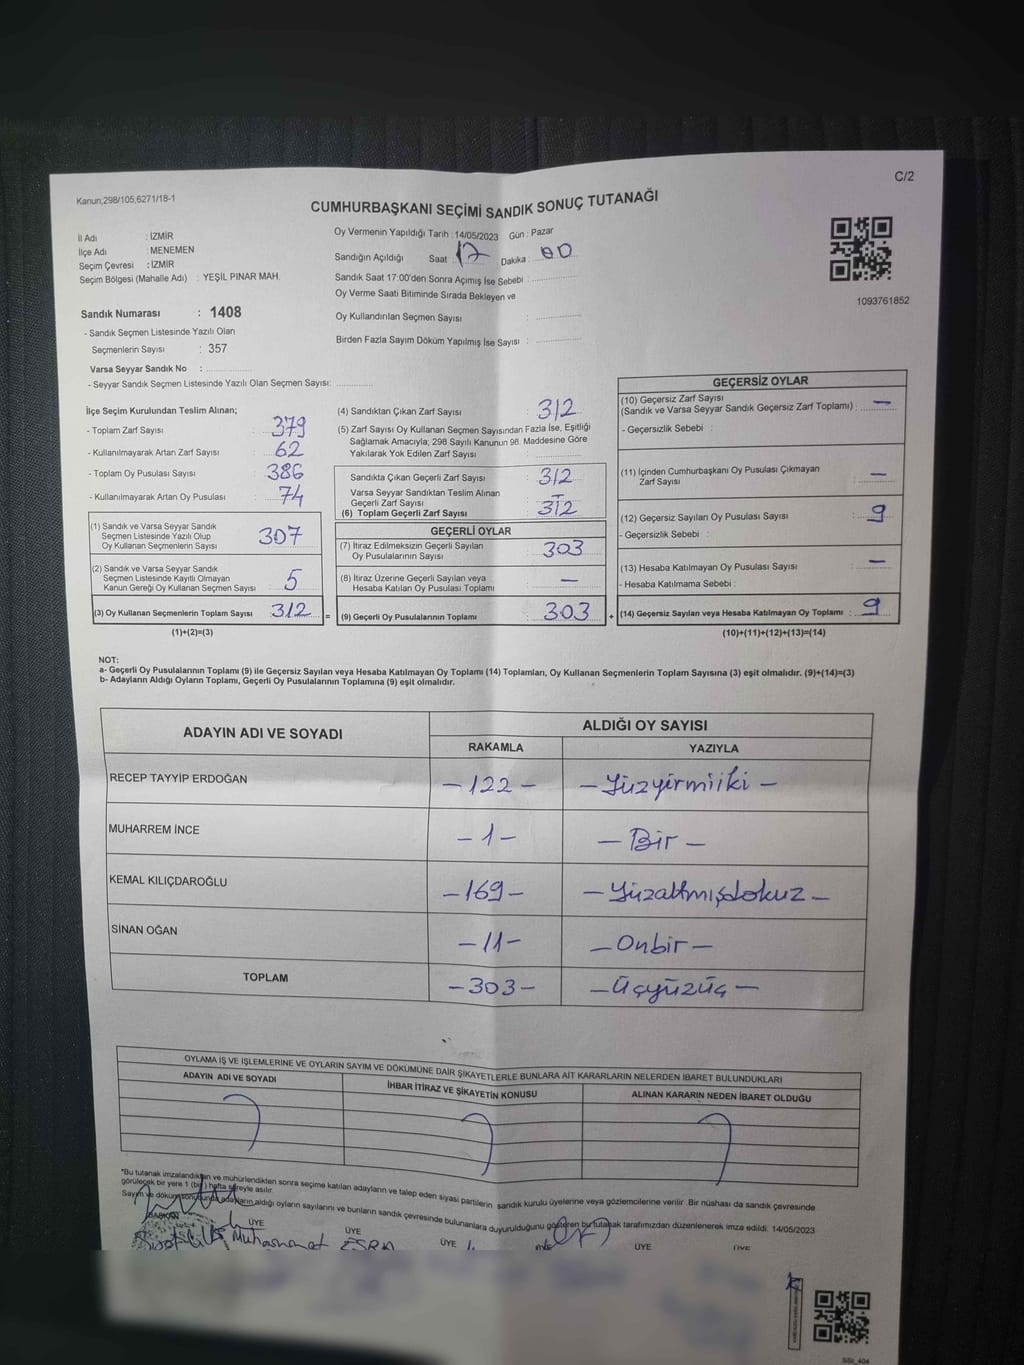 C/2
Kanun;298/105;6271/18-1
CUMHURBAŞKANI SEÇİMİ SANDIK SONUÇ TUTANAĞI
İl Adı : İZMİR
İlçe Adı : MENEMEN
Seçim Çevresi : İZMİR
Seçim Bölgesi (Mahalle Adı) : YEŞİL PINAR MAH.
Oy Vermenin Yapıldığı Tarih : 14/05/2023 Gün : Pazar
Sandığın Açıldığı Saat : 17 Dakika : 00
Sandık Saat 17:00'den Sonra Açımış İse Sebebi :
Oy Verme Saati Bitiminde Sırada Bekleyen ve
Oy Kullandırılan Seçmen Sayısı :
Birden Fazla Sayım Döküm Yapılmış İse Sayısı :
1093761852
Sandık Numarası : 1408
- Sandık Seçmen Listesinde Yazılı Olan
Seçmenlerin Sayısı : 357
Varsa Seyyar Sandık No :
- Seyyar Sandık Seçmen Listesinde Yazılı Olan Seçmen Sayısı:
İlçe Seçim Kurulundan Teslim Alınan;
- Toplam Zarf Sayısı : 379
- Kullanılmayarak Artan Zarf Sayısı : 62
- Toplam Oy Pusulası Sayısı : 386
- Kullanılmayarak Artan Oy Pusulası : 74
(1) Sandık ve Varsa Seyyar Sandık
Seçmen Listesinde Yazılı Olup
Oy Kullanan Seçmenlerin Sayısı : 307
(2) Sandık ve Varsa Seyyar Sandık
Seçmen Listesinde Kayıtlı Olmayan
Kanun Gereği Oy Kullanan Seçmen Sayısı : 5
(3) Oy Kullanan Seçmenlerin Toplam Sayısı : 312
(1)+(2)=(3)
(4) Sandıktan Çıkan Zarf Sayısı : 312
(5) Zarf Sayısı Oy Kullanan Seçmen Sayısından Fazla İse, Eşitliği
Sağlamak Amacıyla; 298 Sayılı Kanunun 98. Maddesine Göre
Yakılarak Yok Edilen Zarf Sayısı :
Sandıkta Çıkan Geçerli Zarf Sayısı : 312
Varsa Seyyar Sandıktan Teslim Alınan
Geçerli Zarf Sayısı : —
(6) Toplam Geçerli Zarf Sayısı : 312
GEÇERLİ OYLAR
(7) İtiraz Edilmeksizin Geçerli Sayılan
Oy Pusulalarının Sayısı : 303
(8) İtiraz Üzerine Geçerli Sayılan veya
Hesaba Katılan Oy Pusulası Toplamı : —
= (9) Geçerli Oy Pusulalarının Toplamı : 303
GEÇERSİZ OYLAR
(10) Geçersiz Zarf Sayısı
(Sandık ve Varsa Seyyar Sandık Geçersiz Zarf Toplamı) : —
- Geçersizlik Sebebi :
(11) İçinden Cumhurbaşkanı Oy Pusulası Çıkmayan
Zarf Sayısı : —
(12) Geçersiz Sayılan Oy Pusulası Sayısı : 9
- Geçersizlik Sebebi :
(13) Hesaba Katılmayan Oy Pusulası Sayısı : —
- Hesaba Katılmama Sebebi :
+ (14) Geçersiz Sayılan veya Hesaba Katılmayan Oy Toplamı : 9
(10)+(11)+(12)+(13)=(14)
NOT:
a- Geçerli Oy Pusulalarının Toplamı (9) ile Geçersiz Sayılan veya Hesaba Katılmayan Oy Toplamı (14) Toplamları, Oy Kullanan Seçmenlerin Toplam Sayısına (3) eşit olmalıdır. (9)+(14)=(3)
b- Adayların Aldığı Oyların Toplamı, Geçerli Oy Pusulalarının Toplamına (9) eşit olmalıdır.
ADAYIN ADI VE SOYADI ALDIĞI OY SAYISI
RAKAMLA YAZIYLA
RECEP TAYYİP ERDOĞAN -122- -Yüzyirmiiki-
MUHARREM İNCE -1- -Bir-
KEMAL KILIÇDAROĞLU -169- -Yüzaltmışdokuz-
SİNAN OĞAN -11- -Onbir-
TOPLAM -303- -Üçyüzüç-
OYLAMA İŞ VE İŞLEMLERİNE VE OYLARIN SAYIM VE DÖKÜMÜNE DAİR ŞİKAYETLERLE BUNLARA AİT KARARLARIN NELERDEN İBARET BULUNDUKLARI
ADAYIN ADI VE SOYADI İHBAR İTİRAZ VE ŞİKAYETİN KONUSU ALINAN KARARIN NEDEN İBARET OLDUĞU
*Bu tutanak imzalandıktan ve mühürlendikten sonra seçime katılan adayların ve talep eden siyasi partilerin sandık kurulu üyelerine veya gözlemcilerine verilir. Bir nüshası da sandık çevresinde
görülecek bir yere 1 (bir) hafta süreyle asılır.
Sayım ve döküm sonucunda adayların aldığı oyların sayılarını ve bunların sandık çevresinde bulunanlara duyurulduğunu gösteren bu tutanak tarafımızdan düzenlenerek imza edildi. 14/05/2023
BAŞKAN ÜYE ÜYE ÜYE ÜYE ÜYE
Muhammet ESRA